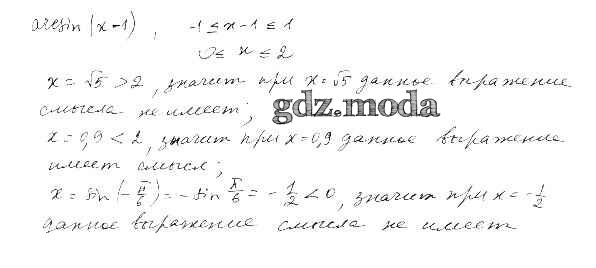 arcsin (x-1), -1 ≤ x-1 ≤ 1
0 ≤ x ≤ 2
x = √5 > 2, значит при x = √5 данное выражение
смысла не имеет;
gdz.moda
x = 0,9 < 2, значит при x = 0,9 данное выражение
имеет смысл;
x = sin(-π/6) = -sin π/6 = -1/2 < 0, значит при x = -1/2
данное выражение смысла не имеет